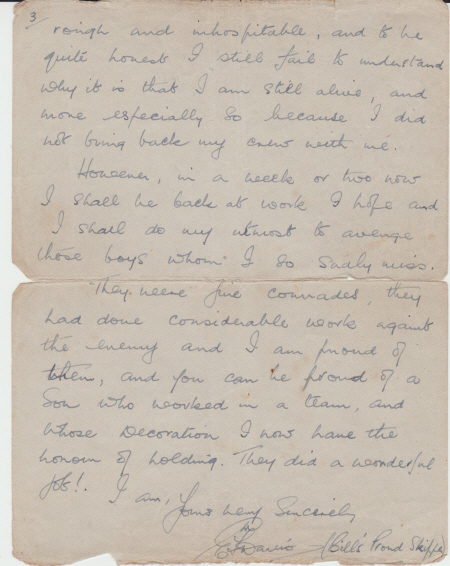 3
rough and inhospitable, and to be
quite honest I still fail to understand
why it is that I am still alive, and
more especially so because I did
not bring back my crew with me.
However, in a week or two now
I shall be back at work I hope and
I shall do my utmost to avenge
those boys whom I so sadly miss.
They were fine comrades, they
had done considerable work against
the enemy and I am proud of
them, and you can be proud of a
Son who worked in a team, and
whose Decoration I now have the
honour of holding. They did a wonderful
job!.
I am,
Yours very Sincerely
(Bill's Proud Skipper)